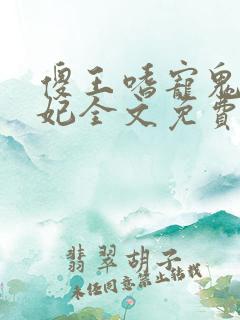 傻王嗜寵鬼
妃全文免費
翡翠胡子
未经同意禁止转载